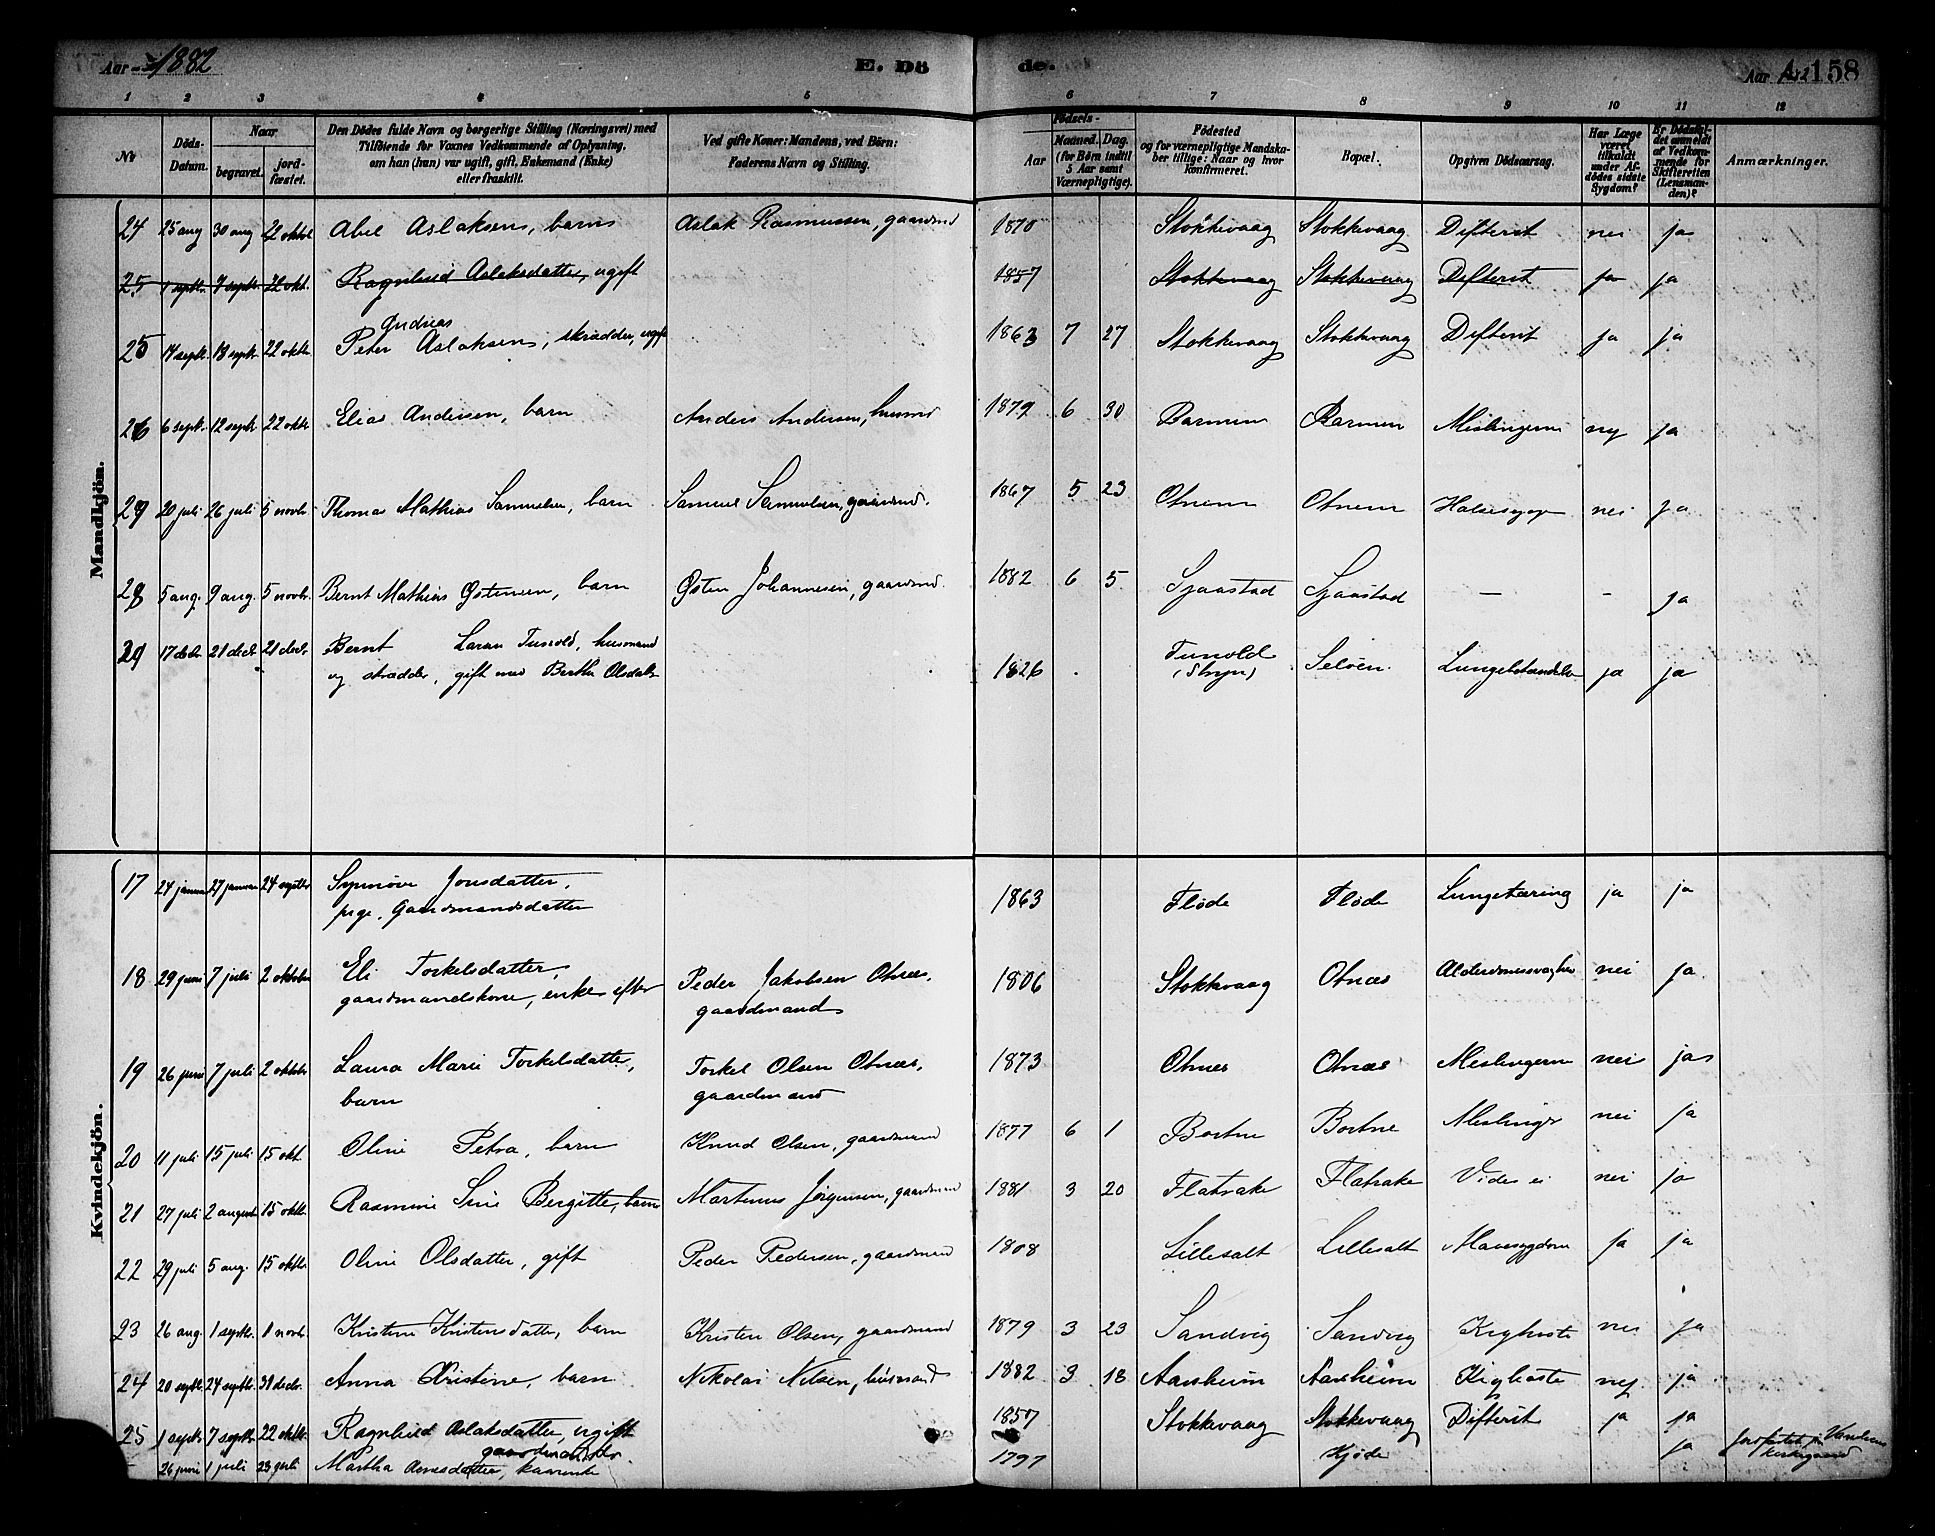 Aar 1882
E. Dö
de.
Aar 1882 A. 158
1 2 3 4 5 6 7 8 9 10 11 12
№ Döds-Datum. Naar begravet. jordfæstet. Den Dödes fulde Navn og borgerlige Stilling (Næringsvei) med Tilföiende for Voxnes Vedkommende af Oplysning, om han (hun) var ugift, gift, Enkemand (Enke) eller fraskilt. Ved gifte Koner: Mandens, ved Börn: Faderens Navn og Stilling. Födsels- Aar Maaned. Dag. (for Börn indtil 5 Aar samt Værnepligtige). Födested og for værnepligtige Mandskaber tillige: Naar og hvor konfirmeret. Bopæl. Opgiven Dödsaarsag. Har Læge været tilkaldt under Afdödes sidste Sygdom? Er Dödsfaldet anmeldt af Vedkommende for Skifteretten (Lensmanden)? Anmærkninger.
Mandkjön.
24 25 aug 30 aug 22 oktbr Abel Aslaksen, barn Aslak Rasmussen, gaardmd 1870 Stokkevaag Stokkevaag Difterit nei ja
25 1 septbr. 7 septbr. 22 okt. Ragnhild Aslaksdatter, ugift 1857 Stokkevaag Stokkevaag Difterit ja ja
Andreas
25 14 septb. 18 septb. 22 oktbr. Peter Aslaksen, skrædder, ugift 1863 7 27 Stokkevaag Stokkevaag Difterit ja ja
26 6 septb. 12 septb. 22 oktbr Elias Andersen, barn Anders Andersen, husmd 1879 6 30 Barmen Barmen Meslingerne nej ja
27 20 juli 26 juli 5 novbr. Thomas Mathias Samuelsen, barn Samuel Samuelsen, gaardmd. 1867 5 23 Otnem Otnem Halssyge nei ja
28 5 aug. 9 aug. 5 novbr. Bernt Mathias Østensen, barn Østen Johannesen, gaardmd. 1882 6 5 Sjaastad Sjaastad – – ja
29 17 decbr. 21 decbr. 21 decbr. Bernt Larsen Tunold, husmand
og skrædder, gift med Berthe Olsdatr 1826 Tunold (Stryn) Seløen. Lungebetændelse ja ja
Kvindekjön.
17 24 januar 27 januar 24 septbr Synnøve Jonsdatter,
pige, Gaardmandsdatter 1863 Fløde Fløde Lungetæring ja ja
18 29 juni 7 juli 2 oktober Eli Torkelsdatter,
gaardmandskone, enke efter Peder Jakobsen Otnæs, gaardmand 1806 Stokkevaag Otnæs Alderdomssvaghed nei ja
19 26 juni 7 juli 2 oktobr Laura Marie Torkelsdatter,
barn Torkel Olsen Otnæs, gaardmand 1873 Otnæs Otnæs Meslingerne nei ja
20 11 juli 15 juli 15 okt. Oline Petra, barn Knud Olsen, gaardmand 1877 6 1 Bortne Bortne Meslinger nei ja
21 27 juli 2 august 15 oktbr. Rasmine Sine Bergitte, barn Martinus Jørgensen, gaardmand 1881 3 20 Flatrake Flatrake Vides ei nei ja
22 29 juli 5 aug. 15 oktbr. Oline Olsdatter, gift Peder Pedersen, gaardmand 1808 Lillesalt Lillesalt Mavesygdom ja ja
23 26 aug. 1 septbr. 1 novbr. Kristine Kristensdatter, barn Kristen Olsen, gaardmand 1879 3 23 Sandvig Sandvig Kighoste nei ja
24 20 septbr. 24 septbr. 31 decbr. Anna Kristine, barn Nikolai Nilsen, husmand 1882 3 18 Aarsheim Aarsheim Kighoste nej ja
25 1 septbr 7 septbr 22 oktbr. Ragnhild Aslaksdatter, ugift
gaardmandsdtr. 1857 Stokkevaag Stokkevaag Difterit ja ja
26 juni 1 juli 23 juli Martha Arnesdatter, kaarenke 1797 Hjøde ja Jordfæstet på kirkegaard